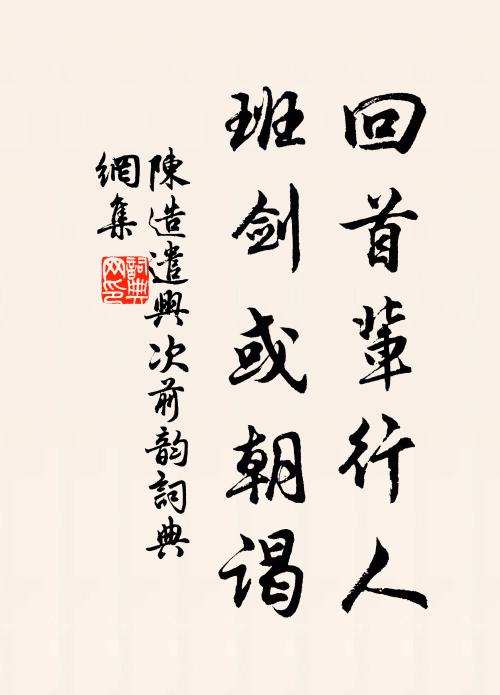 回首輩行人
班剑或朝谒
陳造遣興次前韵詞典
網集
詞典
网印